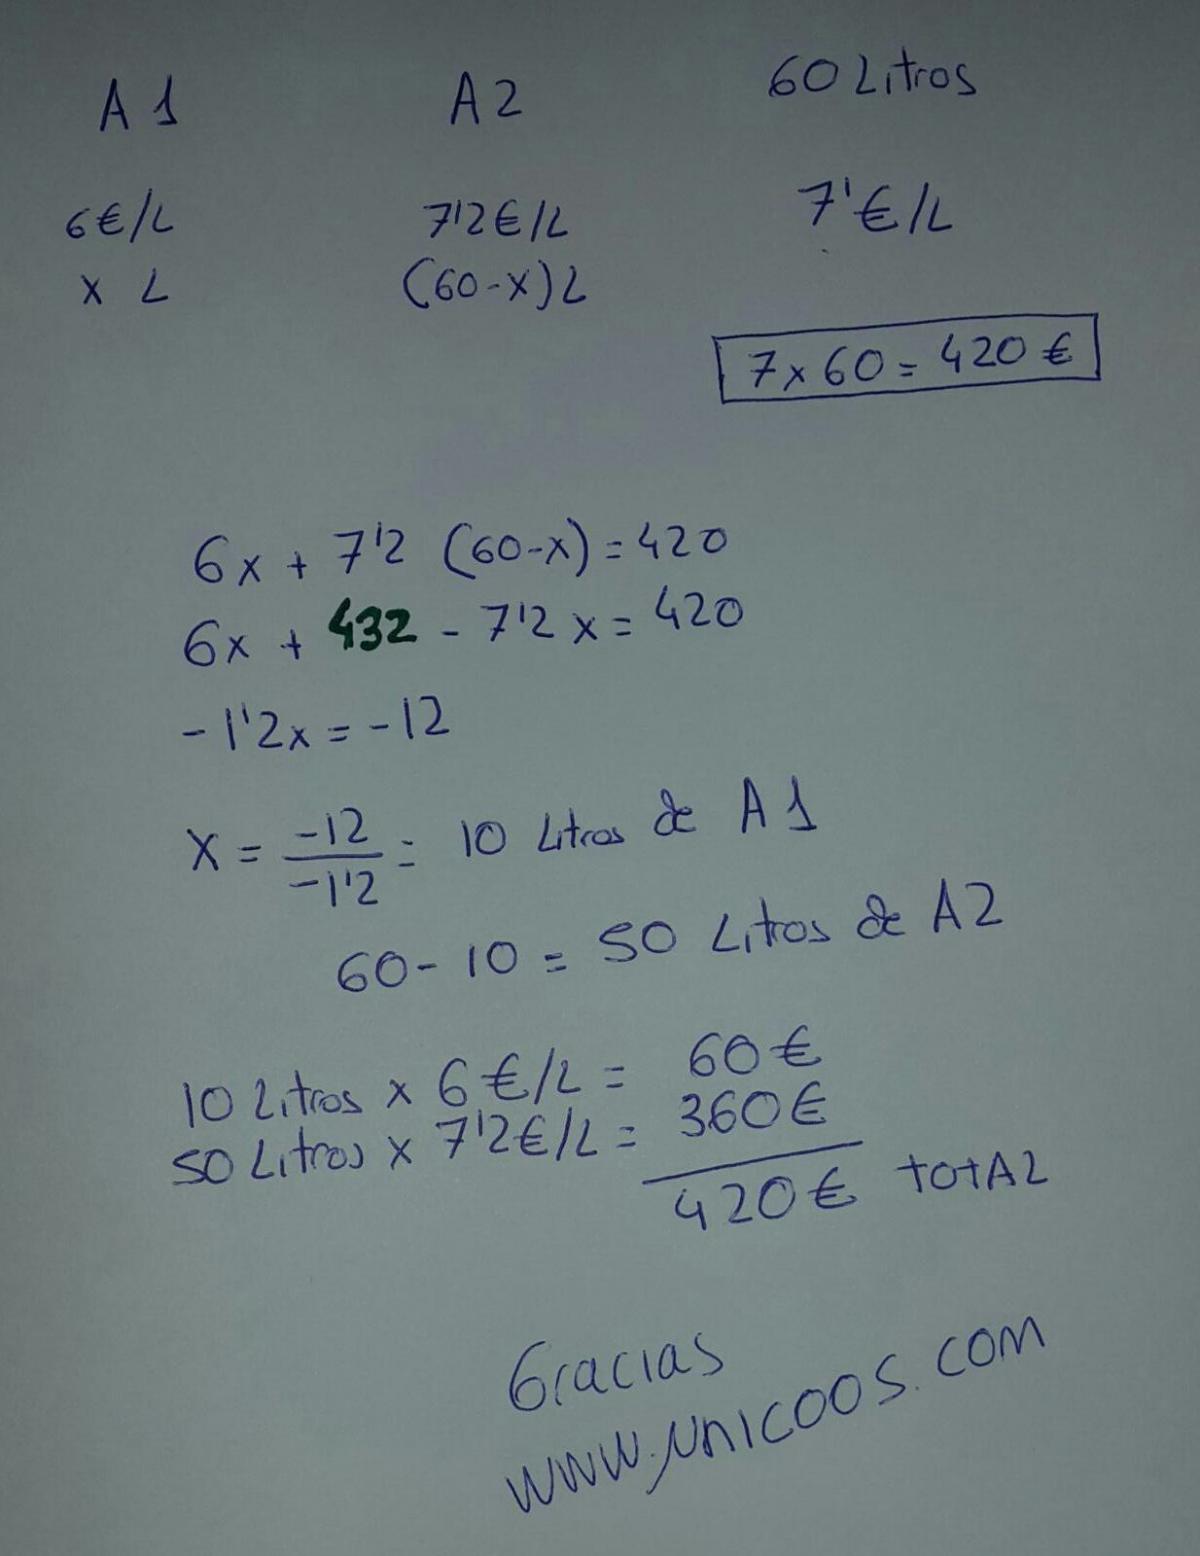 A 1 A 2 60 Litros
6€/L 7'2€/L 7'€/L
x L (60-x)L
7x60=420€
6x + 7'2 (60-x)=420
6x + 432 - 7'2 x = 420
-1'2x = -12
x = -12/-1'2 = 10 Litros de A 1
60-10 = 50 Litros de A2
10 Litros x 6€/L = 60€
50 Litros x 7'2€/L = 360€
420€ totA2
Gracias
www.unicoos.com